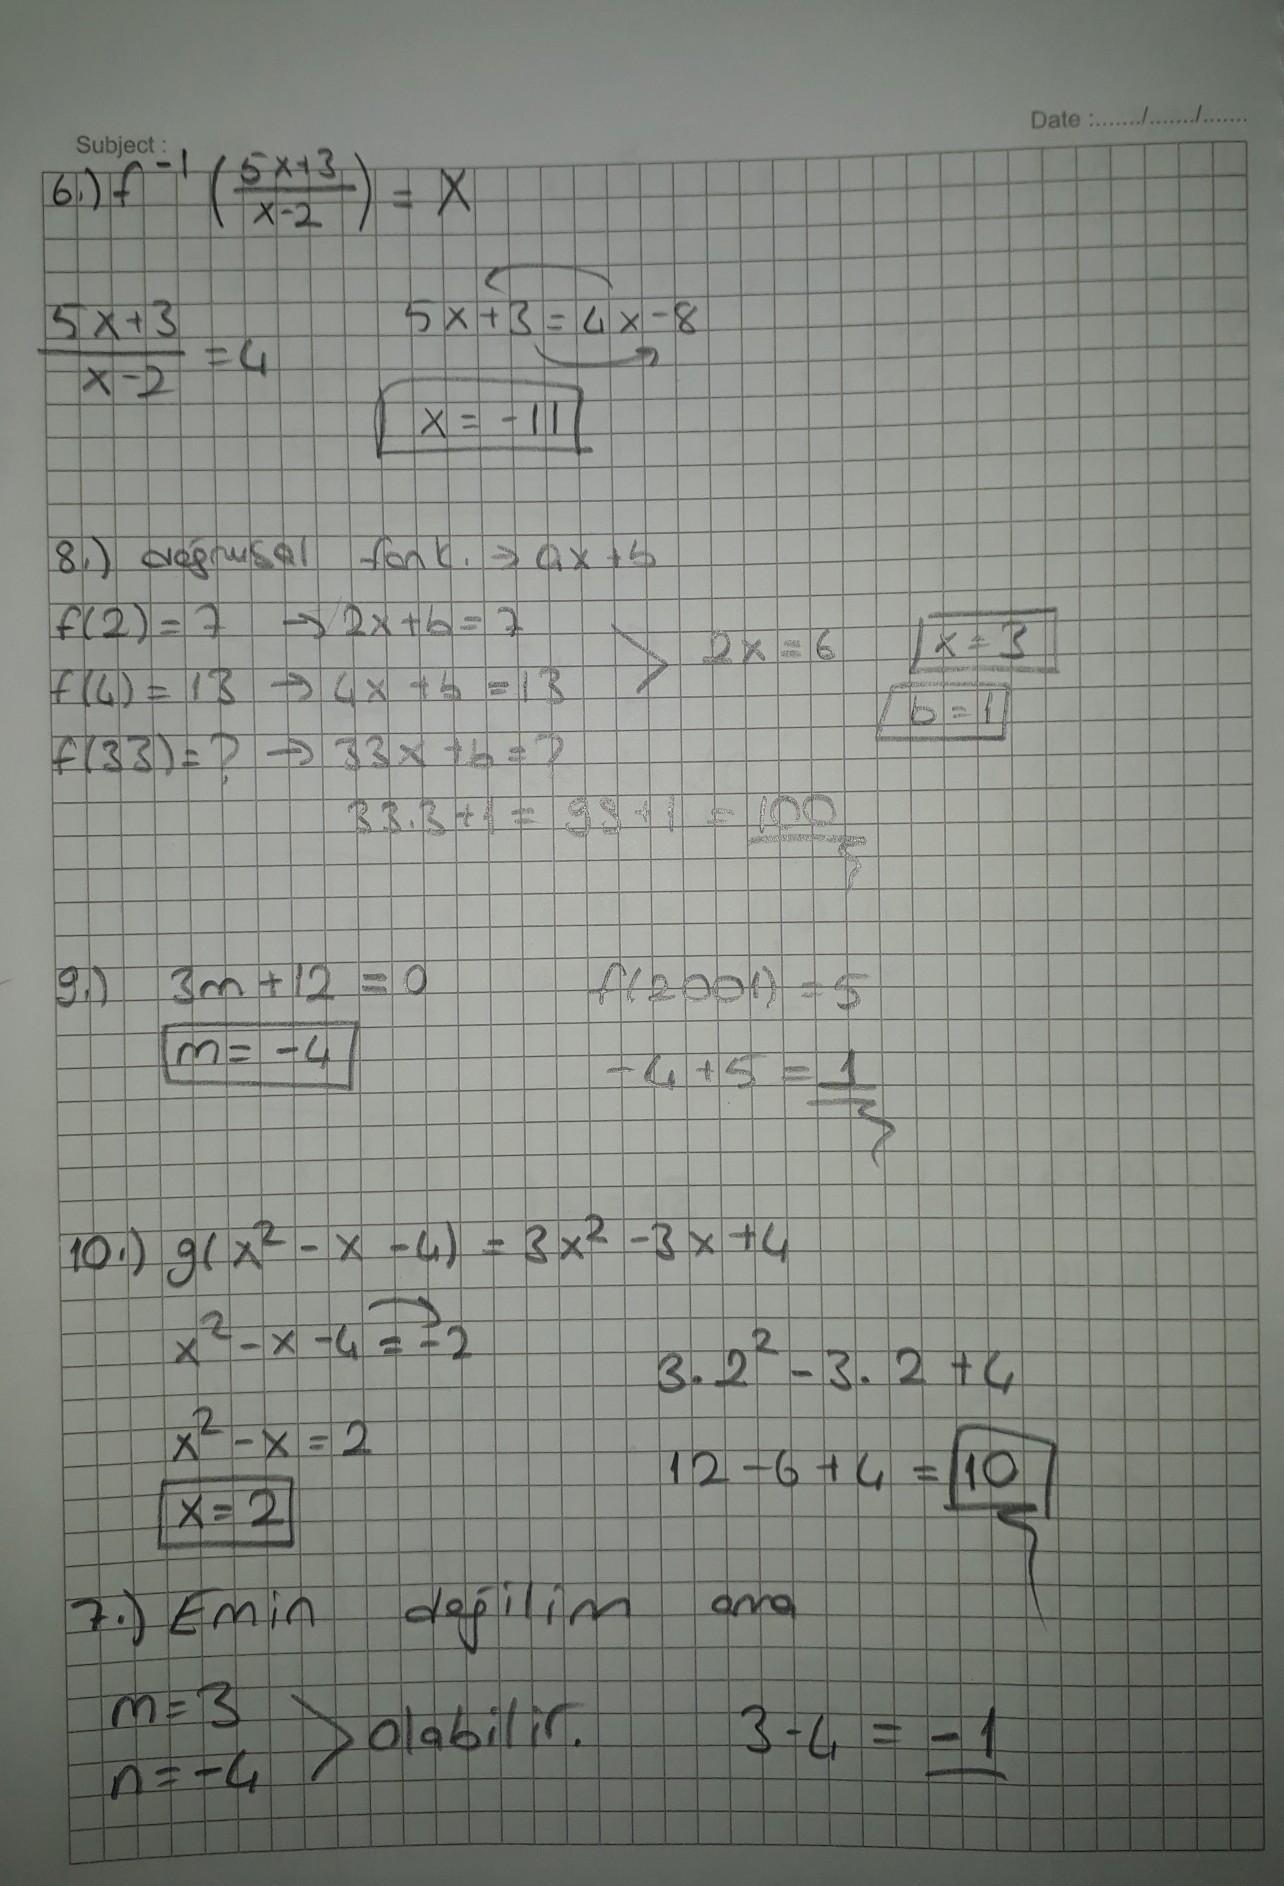 Subject :
Date :......./......./.......
6.) f⁻¹ ( (5x+3)/(x-2) ) = x
(5x+3)/(x-2) = 4
5x+3 = 4x-8
x = -11
8.) doğrusal fonk. → ax+b
f(2) = 7 → 2x+b=7
f(4) = 13 → 4x+b=13
2x=6
x=3
b=1
f(33)=? → 33x+b=?
33.3+1 = 99+1 = 100
9.) 3m+12=0
m=-4
f(2001) = 5
-4+5=1
10.) g(x²-x-4) = 3x²-3x+4
x²-x-4=-2
x²-x=2
x=2
3.2²-3.2+4
12-6+4 = 10
7.) Emin değilim ama
m=3
n=-4
olabilir.
3-4 = -1